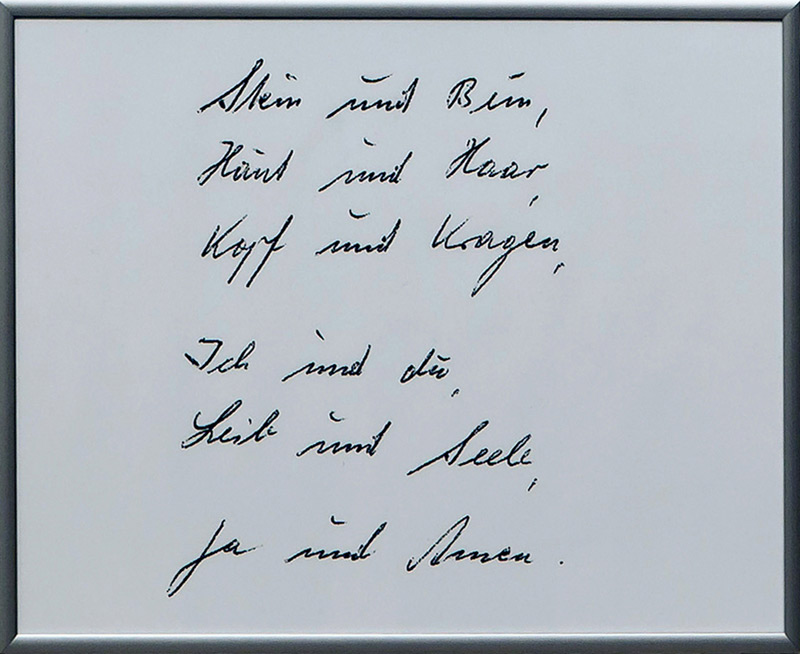 Stein und Bein,
Haut und Haar,
Kopf und Kragen,
Ich und du,
Leib und Seele,
Ja und Amen.